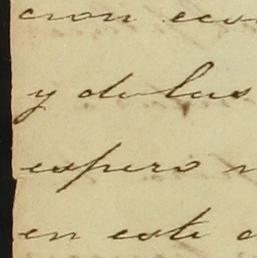 cion eco
y de las
espero
en este